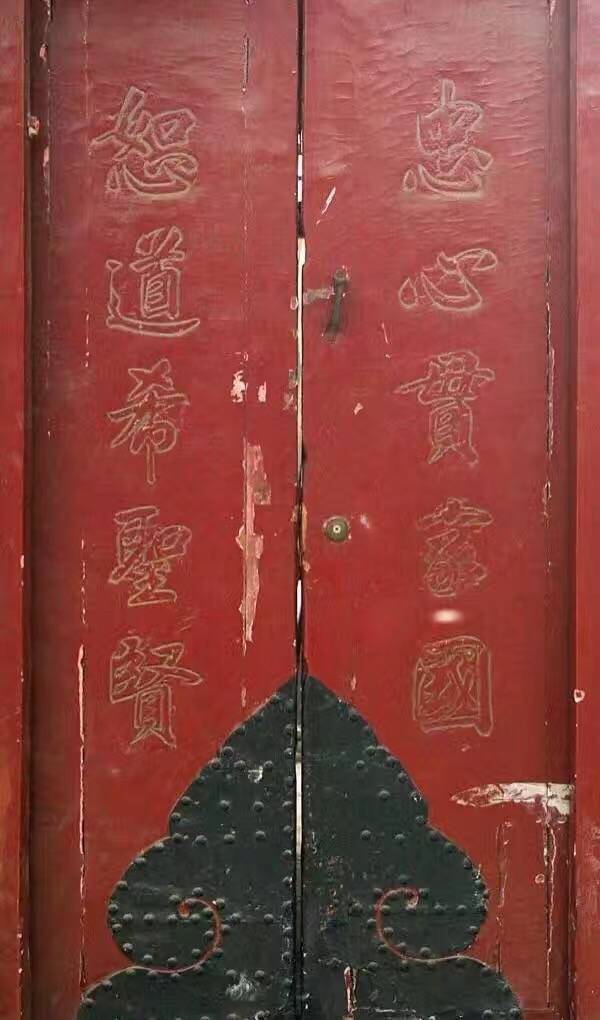 忠心貫家國
恕道希聖賢